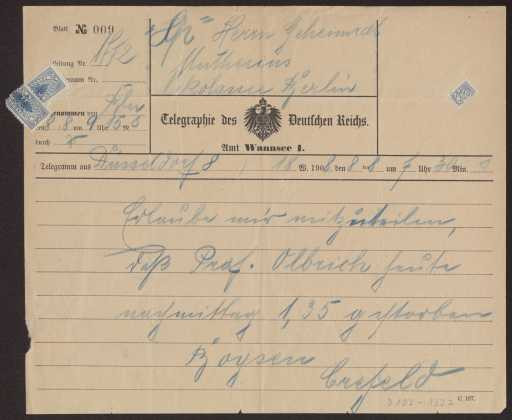 Blatt № 009
Leitung Nr.
Telegramm Nr.
Aufgenommen von
durch
Herrn Geheimrat
Muthesius
Nikolassee Berlin
Telegraphie des Deutschen Reichs.
Amt Wannsee 1.
Telegramm aus Düsseldorf 8, 18 W. 1908, den 8/8 um 7 Uhr 30 Min.
Erlaube mir mitzuteilen,
daß Prof. Olbrich heute
nachmittag 1,35 gestorben
Boysen
Crefeld
C. 187.